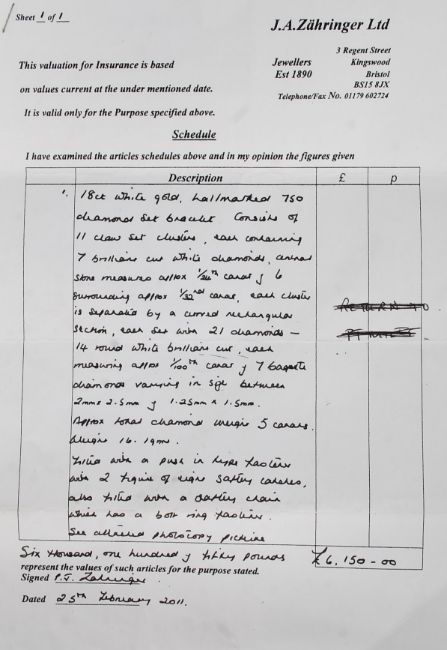 Sheet 1 of 1
J.A.Zähringer Ltd
3 Regent Street
This valuation for Insurance is based
Jewellers
Kingswood
Est 1890
Bristol
on values current at the under mentioned date.
BS15 8JX
Telephone/Fax No. 01179 602724
It is valid only for the Purpose specified above.
Schedule
I have examined the articles schedules above and in my opinion the figures given
Description £ p
1. 18ct white gold, hallmarked 750
diamond set bracelet consists of
11 claw set clusters, each containing
7 brilliant cut white diamonds, central
stone measures approx carat & 6
surrounding approx 1/32nd carat, each cluster
is separated by a curved rectangular
section, each set with 21 diamonds –
14 round white brilliant cut, each
measuring approx 1/100th carat & 7 baguette
diamonds varying in size between
2mm x 2.5mm & 1.25mm x 1.5mm.
Approx total diamond weight 5 carats.
Weight 16.19ms.
fitted with a push in type fastener
with 2 figure of eight safety catches,
also fitted with a safety chain
which has a bolt ring fastener.
See attached photocopy picture
Six thousand, one hundred & fifty pounds
£6,150-00
represent the values of such articles for the purpose stated.
Signed P.J. Zahringer
Dated 25th February 2011.